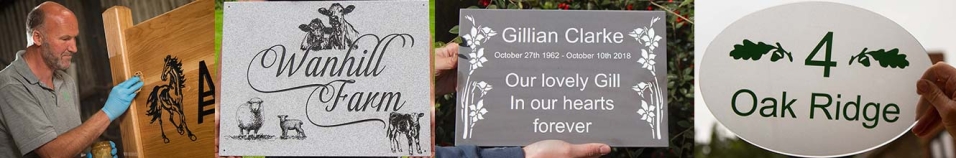 Wanhill
Farm
Gillian Clarke
October 27th 1962 - October 10th 2018
Our lovely Gill
In our hearts
forever
4
Oak Ridge